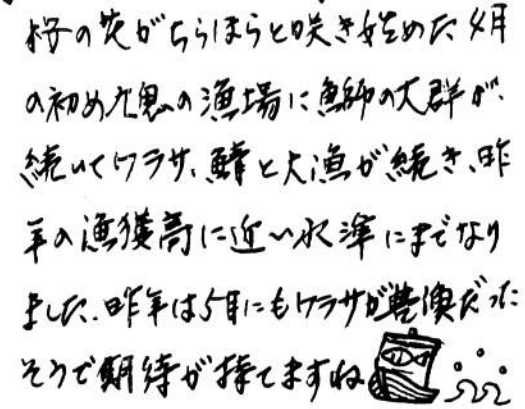 桜の花がちらほらと咲き始めた4月
の初め九鬼の漁場に魚師の大群が、
続いてワラサ、鰆と大漁が続き、昨
年の漁獲高に近い水準にまでなり
ました。昨年は5月にもワラサが豊漁だった
そうで期待が持てますね